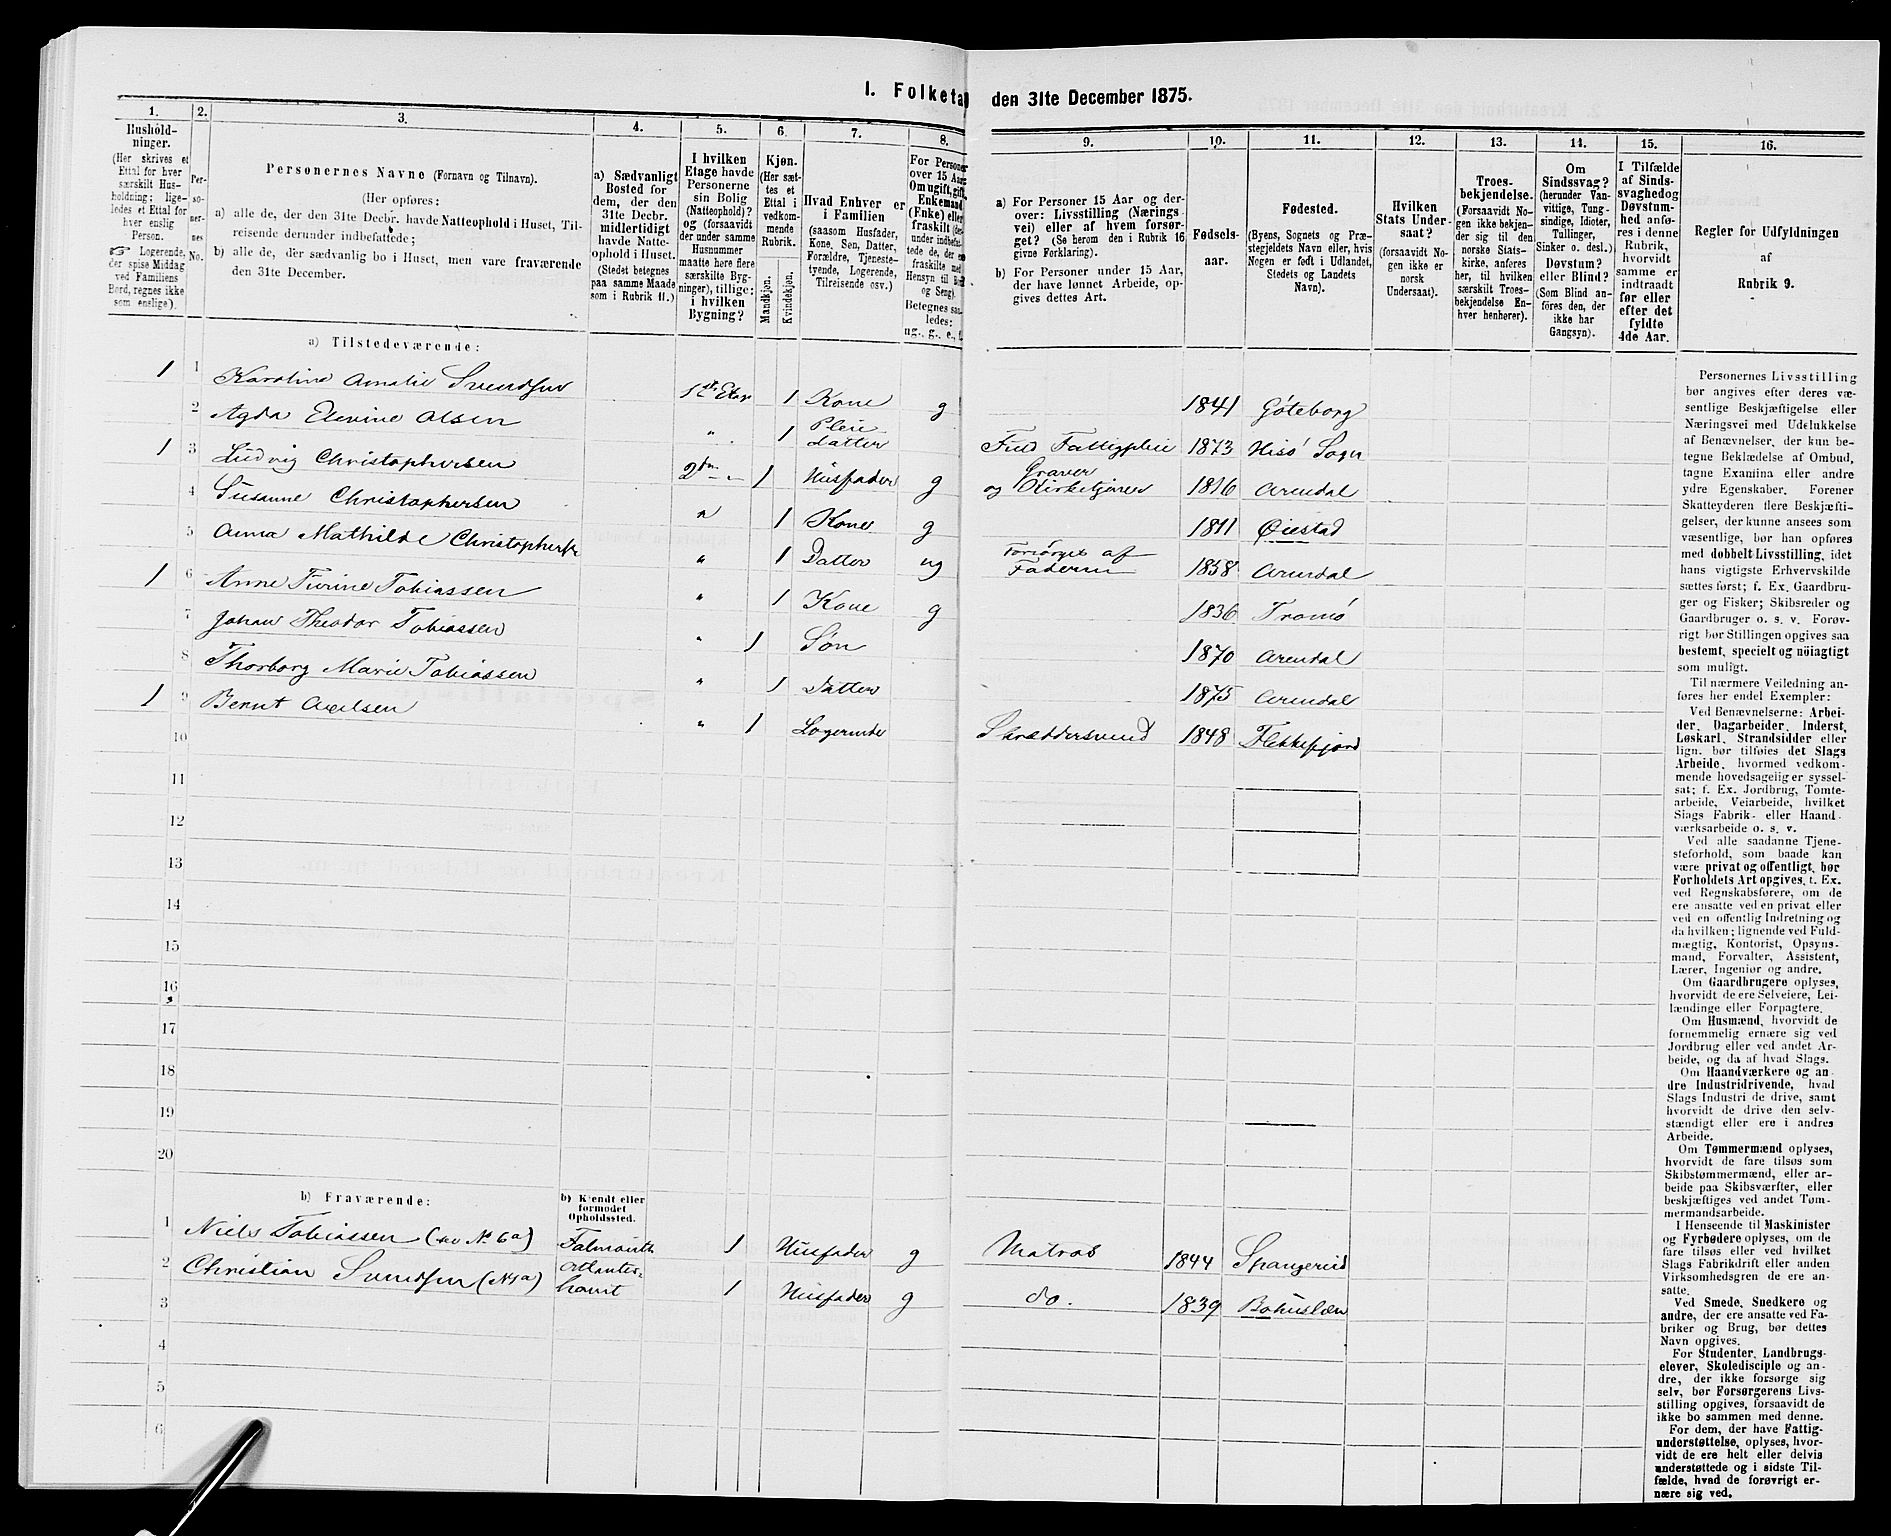 I. Folketal den 31te December 1875.
1.
Hushold-
ninger.
(Her skrives et
Ettal for hver
særskilt Hus-
holdning; lige-
ledes et Ettal for
hver enslig
Person.
☞ Logerende,
der spise Middag
ved Familiens
Bord, regnes ikke
som enslige).
2.
Per-
so-
ner-
nes
No.
3.
Personernes Navne (Fornavn og Tilnavn).
(Her opføres:
a) alle de, der den 31te Decbr. havde Natteophold i Huset, Til-
reisende derunder indbefattede;
b) alle de, der sædvanlig bo i Huset, men vare fraværende
den 31te December.
4.
a) Sædvanligt
Bosted for
dem, der den
31te Decbr.
midlertidigt
havde Natte-
ophold i Huset.
(Stedet betegnes
paa samme Maade
som i Rubrik 11.)
5.
I hvilken
Etage havde
Personerne
sin Bolig
(Natteophold)?
og (forsaavidt
der under samme
Husnummer
maatte høre flere
særskilte Byg-
ninger), tillige:
i hvilken
Bygning?
6.
Kjøn.
(Her sæt-
tes et
Ettal i
vedkom-
mende
Rubrik.
Mandkjøn.
Kvindekjøn.
7.
Hvad Enhver er
i Familien
(saasom Husfader,
Kone, Søn, Datter,
Forældre, Tjeneste-
tyende, Logerende,
Tilreisende osv.)
8.
For Personer
over 15 Aar:
Om ugift, gift,
Enkemand
(Enke) eller
fraskilt (der-
under indbefat-
tede de, der ere
fraskilte med
Hensyn til Bord
og Seng).
Betegnes saa-
ledes:
ug., g., e., f.
9.
a) For Personer 15 Aar og der-
over: Livsstilling (Nærings
vei) eller af hvem forsør-
get? (Se herom den i Rubrik 16
givne Forklaring).
b) For Personer under 15 Aar,
der have lønnet Arbeide, op-
gives dettes Art.
10.
Fødsels-
aar.
11.
Fødested.
(Byens, Sognets og Præ-
stegjeldets Navn eller, hvis
Nogen er født i Udlandet,
Stedets og Landets
Navn).
12.
Hvilken
Stats Under-
saat?
(forsaavidt No-
gen ikke er
norsk
Undersaat).
13.
Troes-
bekjendelse.
(Forsaavidt No-
gen ikke bekjen-
der sig til den
norske Stats-
kirke, anføres
her, til hvilken
særskilt Troes-
bekjendelse En-
hver henhører).
14.
Om
Sindssvag?
(herunder Van-
vittige, Tung-
sindige, Idioter,
Tullinger,
Sinker o. desl.).
Døvstum?
eller Blind?
(Som Blind an-
føres den, der
ikke har
Gangsyn).
15.
I Tilfælde
af Sinds-
svaghed og
Døvstum-
hed anfø-
res i denne
Rubrik,
hvorvidt
samme er
indtraadt
før eller
efter det
fyldte
4de Aar.
16.
Regler for Udfyldningen
af
Rubrik 9.
a) Tilstedeværende:
1 1 Karoline Amalie Svendsen 1ste Etag 1 Kone g 1841 Göteborg
2 Agda Elevine Olsen " 1 Pleie Datter Fuld Fattigpleie 1873 Hisø Sogn
1 3 Ludvig Christophersen 2den " 1 Husfader g Graver og Kirketjener 1816 Arendal
4 Susanne Christophersen " 1 Kone g 1811 Øiestad
5 Anna Mathilde Christophersen " 1 Datter ug Forsørges af Faderen 1858 Arendal
1 6 Anne Turine Tobiassen " 1 Kone g 1836 Tromø
7 Johan Theodor Tobiassen " 1 Søn 1870 Arendal
8 Thorborg Marie Tobiassen " 1 Datter 1875 Arendal
1 9 Bernt Axelsen " 1 Logerende Skræddersvend 1848 Flekkefjord
10
11
12
13
14
15
16
17
18
19
20
b) Fraværende:
b) Kjendt eller
formodet
Opholdssted.
1 Niels Tobiassen (se No 6a) Falmouth 1 Husfader g Matros 1844 Spangereid
2 Christian Svendsen (N1a) Atlanter-
havet 1 Husfader g do. 1839 Bohuslen
3
4
5
6
Personernes Livsstilling
bør angives efter deres væ-
sentlige Beskjæftigelse eller
Næringsvei med Udelukkelse
af Benævnelser, der kun be-
tegne Beklædelse af Ombud,
tagne Examina eller andre
ydre Egenskaber. Forener
Skatteyderen flere Beskjæfti-
gelser, der kunne ansees som
væsentlige, bør han opføres
med dobbelt Livsstilling, idet
hans vigtigste Erhvervskilde
sættes først; f. Ex. Gaardbru-
ger og Fisker; Skibsreder og
Gaardbruger o. s. v. Forøv-
rigt bør Stillingen opgives saa
bestemt, specielt og nöiagtigt
som muligt.
Til nærmere Veiledning an-
føres her endel Exempler:
Ved Benævnelserne: Arbei-
der, Dagarbeider, Inderst,
Løskarl, Strandsidder eller
lign. bør tilføies det Slags
Arbeide, hvormed vedkom-
mende hovedsagelig er syssel-
sat; f. Ex. Jordbrug, Tomte-
arbeide, Veiarbeide, hvilket
Slags Fabrik- eller Haand-
værksarbeide o. s. v.
Ved alle saadanne Tjene-
steforhold, som baade kan
være privat og offentligt, bør
Forholdets Art opgives, t. Ex.
ved Regnskabsførere, om de
ere ansatte ved en privat eller
ved en offentlig Indretning og
da hvilken; lignende ved Fuld-
mægtig, Kontorist, Opsyns-
mand, Forvalter, Assistent,
Lærer, Ingeniør og andre.
Om Gaardbrugere oplyses,
hvorvidt de ere Selveiere, Lei-
lændinge eller Forpagtere.
Om Husmænd, hvorvidt de
fornemmelig ernære sig ved
Jordbrug eller ved andet Ar-
beide, og da af hvad Slags.
Om Haandværkere og an-
dre Industridrivende, hvad
Slags Industri de drive, samt
hvorvidt de drive den selv-
stændigt eller ere i andres
Arbeide.
Om Tømmermænd oplyses,
hvorvidt de fare tilsøs som
Skibstømmermænd, eller ar-
beide paa Skibsværfter, eller
beskjæftiges ved andet Tøm-
mermandsarbeide.
I Henseende til Maskinister
og Fyrbødere oplyses, om de
fare tilsøs eller ved hvilket
Slags Fabrikdrift eller anden
Virksomhedsgren de ere an-
satte.
Ved Smede, Snedkere og
andre, der ere ansatte ved Fa-
briker og Brug, bør dettes
Navn opgives.
For Studenter, Landbrugs-
elever, Skoledisciple og an-
dre, der ikke forsørge sig
selv, bør Forsørgerens Livs-
stilling opgives, forsaavidt de
ikke bo sammen med denne.
For dem, der have Fattig-
understøttelse, oplyses, hvor-
vidt de ere helt eller delvis
understøttede og i sidste Til-
fælde, hvad de forøvrigt er-
nære sig ved.